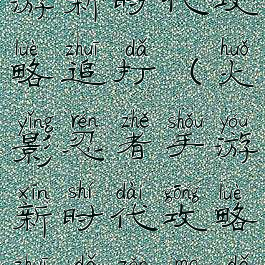 游新时代攻
lüè zhuī dǎ huǒ
略追打（火
yǐng rěn zhě shǒu yóu
影忍者手游
xīn shí dài gōng lüè
新时代攻略